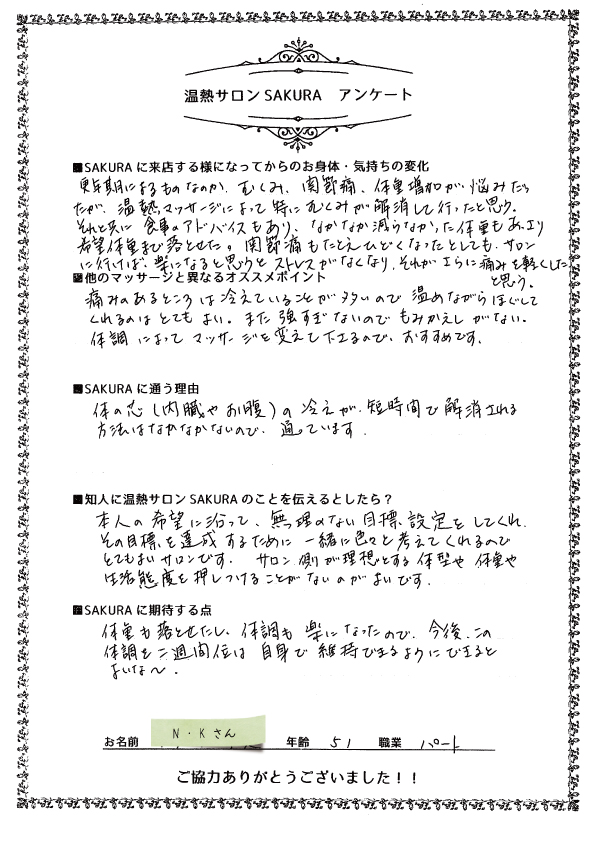 温熱サロン SAKURA　アンケート
■SAKURA に来店する様になってからのお身体・気持ちの変化
更年期によるものなのか、むくみ、関節痛、体重増加が悩みだっ
たが、温熱マッサージによって特にむくみが解消して行ったと思う。
それと共に食事のアドバイスもあり、なかなか減らなかった体重もあっさり
希望体重まで落とせた。関節痛もたとえひどくなったとしても、サロン
に行けば、楽になると思うとストレスがなくなり、それがさらに痛みを軽くした
と思う。
■他のマッサージと異なるオススメポイント
痛みのあるところは冷えていることが多いので温めながらほぐして
くれるのはとてもよい。また強すぎないのでもみかえしがない。
体調によってマッサージを変えて下さるので、おすすめです。
■SAKURA に通う理由
体の芯（内臓やお腹）の冷えが、短時間で解消される
方法はなかなかないので、通っています．
■知人に温熱サロン SAKURA のことを伝えるとしたら？
本人の希望に沿って、無理のない目標設定をしてくれ、
その目標を達成するために一緒に色々と考えてくれるので
とてもよいサロンです。サロン側が理想とする体型や体重や
生活態度を押しつけることがないのがよいです。
■SAKURA に期待する点
体重も落とせたし、体調も楽になったので、今後、この
体調を二週間位は自身で維持できるようにできると
よいな～．
お名前　N・Kさん　年齢　51　職業　パート
ご協力ありがとうございました！！